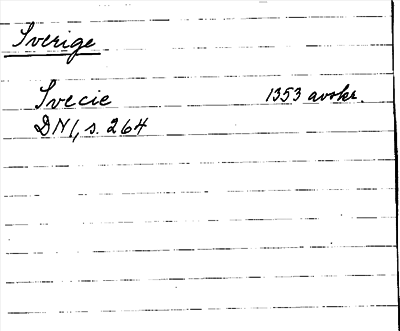 Sverige
Svecie 1353 avskr.
DN 1, s. 264